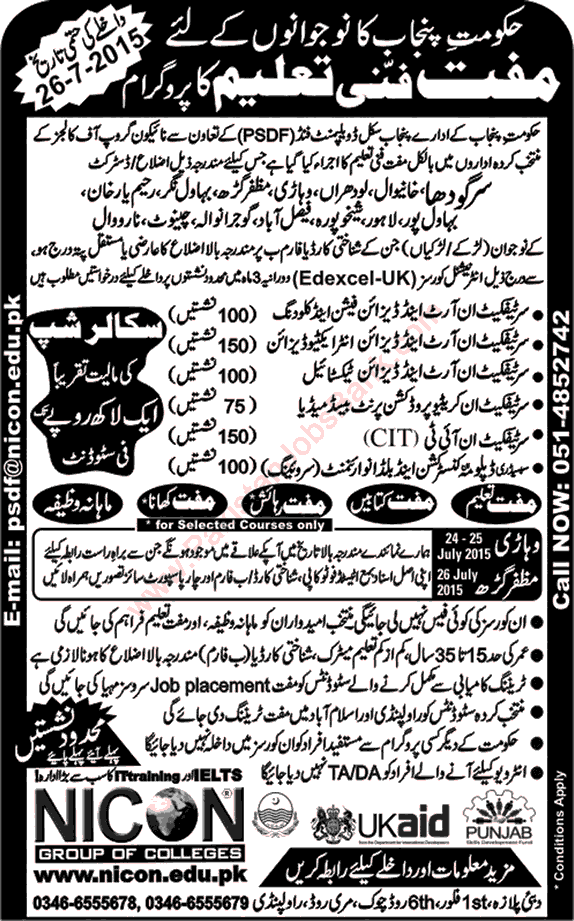 داخلے کی حتمی تاریخ
26-7-2015
حکومتِ پنجاب کا نوجوانوں کے لئے
مفت فنّی تعلیم کا پروگرام
حکومتِ پنجاب کے ادارے پنجاب سکل ڈویلپمنٹ فنڈ (PSDF) کے تعاون سے نائیکون گروپ آف کالجز کے
منتخب کردہ اداروں میں بالکل مفت فنی تعلیم کا اجراء کیا گیا ہے جس کیلئے مندرجہ ذیل اضلاع / ڈسٹرکٹ
سرگودھا، خانیوال، لودھراں، وہاڑی، مظفر گڑھ، بہاول نگر، رحیم یار خان،
بہاول پور، لاہور، شیخوپورہ، فیصل آباد، گوجرانوالہ، چنیوٹ، نارووال
کے نوجوان (لڑکے / لڑکیاں) جن کے شناختی کارڈ یا فارم ب پر مندرجہ بالا اضلاع کا عارضی یا مستقل پتہ درج ہو،
سے درج ذیل انٹرنیشنل کورسز (Edexcel-UK) دورانیہ 3 ماہ میں محدود نشستوں پر داخلے کیلئے درخواستیں مطلوب ہیں
• سرٹیفکیٹ ان آرٹ اینڈ ڈیزائن فیشن اینڈ کلودنگ (100 نشستیں)
• سرٹیفکیٹ ان آرٹ اینڈ ڈیزائن انٹرایکٹیو ڈیزائن (150 نشستیں)
• سرٹیفکیٹ ان آرٹ اینڈ ڈیزائن ٹیکسٹائیل (100 نشستیں)
• سرٹیفکیٹ ان کریٹیو پروڈکشن پرنٹ بیسڈ میڈیا (75 نشستیں)
• سرٹیفکیٹ ان آئی ٹی (CIT) (150 نشستیں)
• سبسڈری ڈپلومہ کنسٹرکشن اینڈ بلڈ انوائرمنٹ (سرویئنگ) (100 نشستیں)
سکالرشپ
کی مالیت تقریباً
ایک لاکھ روپے تک
فی سٹوڈنٹ
مفت تعلیم
مفت کتابیں
مفت رہائش*
مفت کھانا*
ماہانہ وظیفہ
* for Selected Courses only
وہاڑی 24 - 25 July 2015
مظفر گڑھ 26 July 2015
ہمارے نمائندے مندرجہ بالا تاریخ میں آپکے علاقے میں موجود ہونگے جن سے براہِ راست رابطہ کیلئے
اپنی اصل اسناد بمع اٹیسٹڈ فوٹو کاپی، شناختی کارڈ / ب فارم اور چار پاسپورٹ سائز تصویریں ہمراہ لائیں
• ان کورسز کی کوئی فیس نہیں لی جائیگی منتخب امیدواران کو ماہانہ وظیفہ، اور مفت تعلیم فراہم کی جائیں گی
• عمر کی حد 15 تا 35 سال، کم از کم تعلیم میٹرک، شناختی کارڈ یا (ب فارم) مندرجہ بالا اضلاع کا ہونا لازمی ہے
• ٹریننگ کامیابی سے مکمل کرنے والے سٹوڈنٹس کو مفت Job placement سروسز مہیا کی جائیں گی
• منتخب کردہ سٹوڈنٹس کو راولپنڈی اور اسلام آباد میں مفت ٹریننگ دی جائے گی
• حکومت کے دیگر کسی پروگرام سے مستفید افراد کو ان کورسز میں داخلہ نہیں دیا جائیگا
• انٹرویو کیلئے آنے والے افراد کو TA/DA نہیں دیا جائیگا
محدود نشستیں
پہلے آیئے پہلے پایئے
E-mail: psdf@nicon.edu.pk
Call NOW: 051-4852742
www.PakistanJobsBank.com
IELTS اور ITtraining کا سب سے بڑا ادارہ
NICON®
GROUP OF COLLEGES
www.nicon.edu.pk
UKaid
from the Department for International Development
PUNJAB
Skills Development Fund
* Conditions Apply
مزید معلومات اور داخلے کیلئے رابطہ کریں
دبئی پلازہ، 1st فلور، 6th روڈ چوک، مری روڈ، راولپنڈی 0346-6555678, 0346-6555679